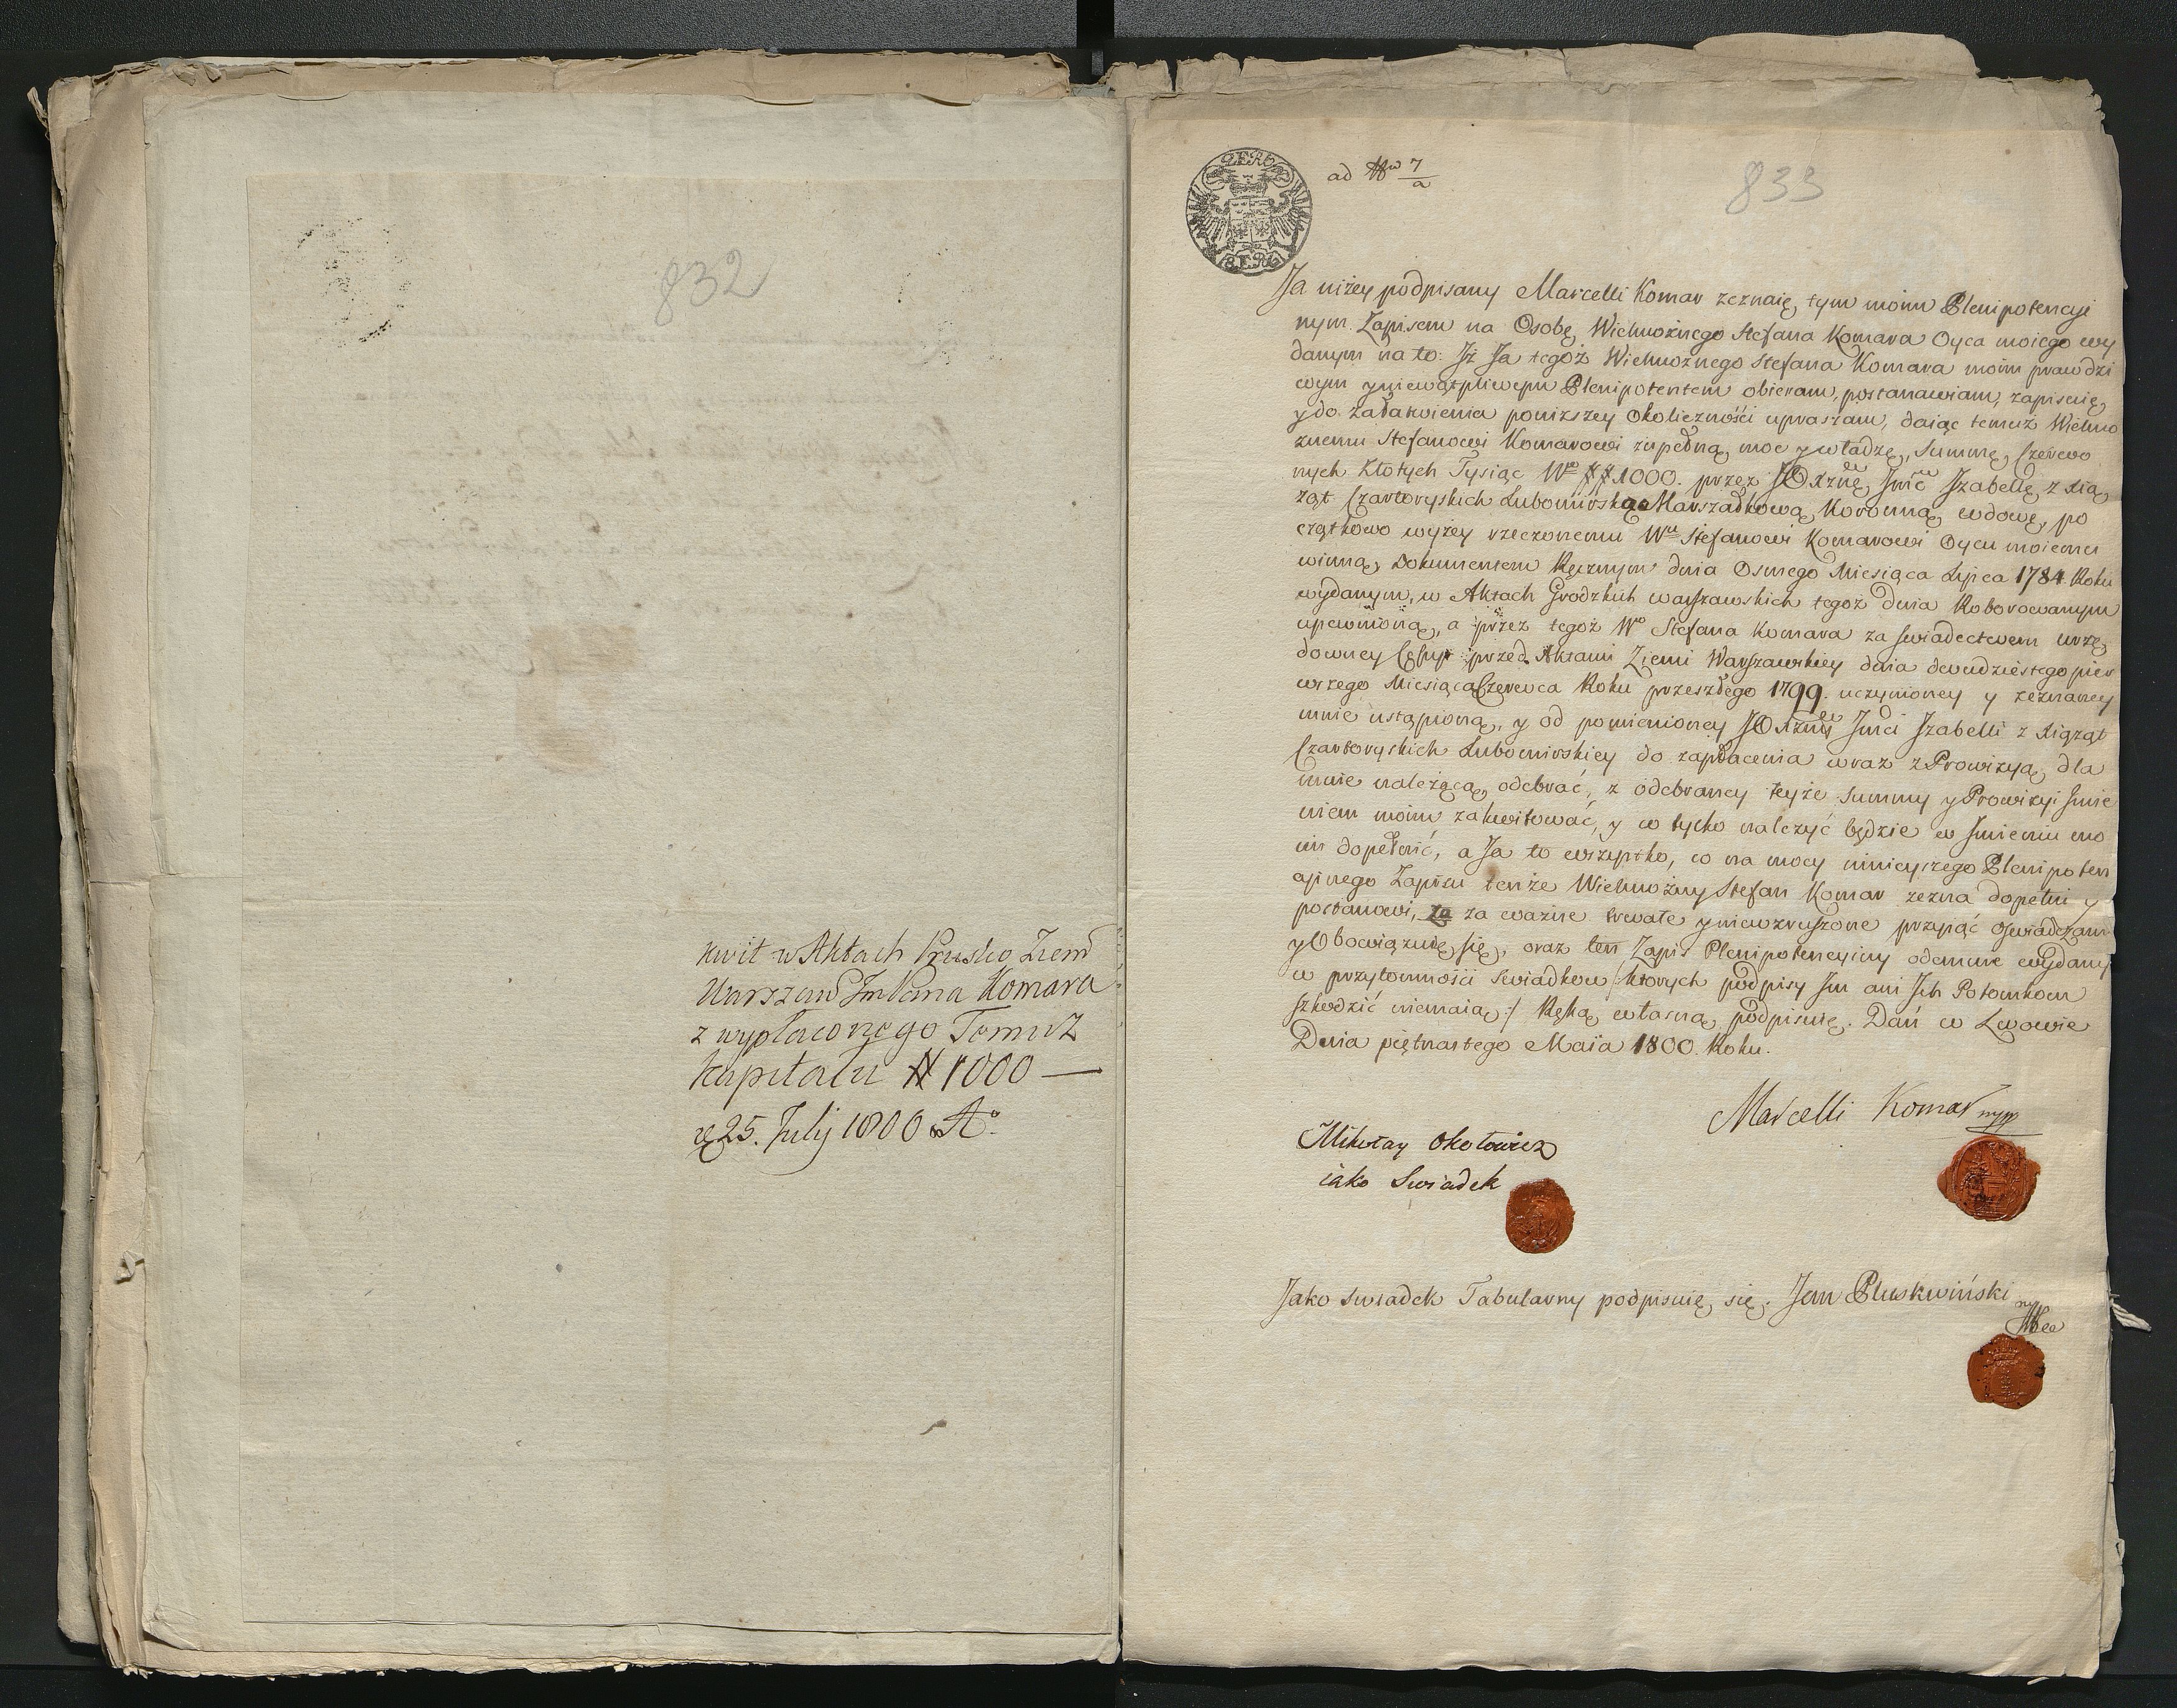 832
kwit w Aktach Prusko Ziem
Warszaw Jmć Pana Komara
z wypłaconego Temuż
Kapitału # 1000 —
25. Julij 1800 Aº
ad Nrw 7/a
833
Ja niżey podpisany Marcelli Komar zeznaię tym moim Plenipotencyi
nym Zapisem na Osobę Wielmożnego Stefana Komara Oyca moiego wy
danym na to: Jż Ja tegoż Wielmożnego Stefana Komara moim prawdzi
wym y niewątpliwym Plenipotentem obieram, postanawiam, zapisuię,
y do załatwienia poniższey Okoliczności upraszam, daiąc temuż Wielmo
żnemu Stefanowi Komarowi zupełną moc y władzę, Summę Czerwo
nych Złotych Tysiąc Nro ## 1000. przez JO Xżnę Jmć Jzabellę z Xią
żąt Czartoryskich Lubomirską Marszałkową Koronną wdowę, po
czątkowo wyżey rzeczonemu Wu Stefanowi Komarowi Oycu moiemu
winną, Dokumentem Ręcznym dnia Osmego Miesiąca Lipca 1784. Roku
wydanym, w Aktach Grodzkich warszawskich tegoż dnia Roborowanym
upewnioną, a przez tegoż Wo Stefana Komara za świadectwem urzę
downey Cessyi przed Aktami Ziemi Warszawskiey dnia dwudziestego pier
wszego Miesiąca Czerwca Roku przeszłego 1799. uczynioney y zeznaney
mnie ustąpioną, y od pomienioney JO Xżney Jmci Jzabelli z Xiążąt
Czartoryskich Lubomirskiey do zapłacenia wraz z Prowizyą dla
mnie należącą, odebrać, z odebraney teyże Summy y Prowizyi Jmie
niem moim zakwitować, y co tylko należyć będzie w Jmieniu mo
im dopełnić, a Ja to wszystko, co na mocy ninieyszego Plenipoten
cyinego Zapisu tenże Wielmożny Stefan Komar zezna dopełni y
postanowi, za za ważne trwałe y niewzruszone przyiąć oświadczam
y Obowiązuię się, oraz ten Zapis Plenipotencyiny odemnie wydany
w przytomności świadków /: których podpisy Jm ani Jch Potomkom
szkodzić niemaią :/ Ręką własną podpisuię. Dań w Lwowie
Dnia piętnastego Maia 1800. Roku.
Marcelli Komar mpp
Mikołay Okołowicz
iako Swiadek
Jako Swiadek Tabularny podpisuię się. Jan Pluskwiński